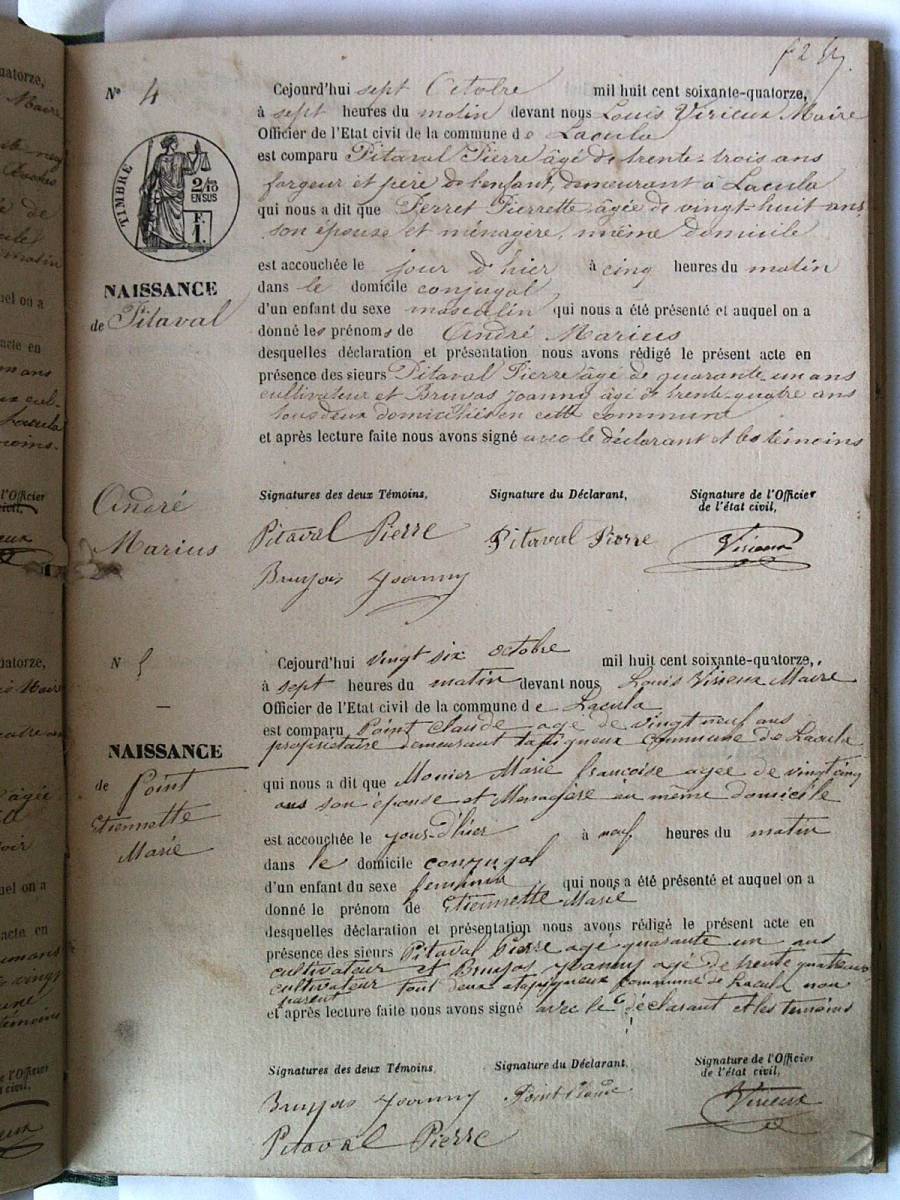 Nº 4
Cejourd'hui sept Octobre mil huit cent soixante-quatorze,
à sept heures du matin devant nous Louis Virieux Maire
Officier de l'Etat civil de la commune de Lacula
est comparu Pitaval Pierre âgé de trente-trois ans
forgeur et père de l'enfant, demeurant à Lacula
qui nous a dit que Ferret Pierrette âgée de vingt-huit ans
son épouse et ménagère, même domicile
TIMBRE
2/10
EN SUS
F.
1.
est accouchée le jour d'hier à cinq heures du matin
dans le domicile conjugal
NAISSANCE
de Pitaval
d'un enfant du sexe masculin qui nous a été présenté et auquel on a
donné les prénoms de André Marius
desquelles déclaration et présentation nous avons rédigé le présent acte en
présence des sieurs Pitaval Pierre âgé de quarante-un ans
cultivateur et Bruyas Joanny âgé de trente-quatre ans
tous deux domiciliés en cette commune
et après lecture faite nous avons signé avec le déclarant et les témoins
André
Marius
Signatures des deux Témoins,
Signature du Déclarant,
Signature de l'Officier
de l'état civil,
Pitaval Pierre
Pitaval Pierre
Virieux
Bruyas Joanny
N 5
Cejourd'hui vingt six octobre mil huit cent soixante-quatorze,
à sept heures du matin devant nous Louis Virieux Maire
Officier de l'Etat civil de la commune de Lacula
est comparu Point Claude agé de vingt neuf ans
propriétaire demeurant commune de Lacula
NAISSANCE
de Point
Etiennette
Marie
qui nous a dit que Monier Marie françoise agée de vingt cinq
ans son épouse et Menagère au même domicile
est accouchée le jour-d'hier à neuf heures du matin
dans le domicile conjugal
d'un enfant du sexe feminin qui nous a été présenté et auquel on a
donné le prénom de Etiennette Marie
desquelles déclaration et présentation nous avons rédigé le présent acte en
présence des sieurs Pitaval Pierre agé quarante un ans
cultivateur et Bruyas Joanny agé de trente quatre ans
cultivateur tout deux commune de Lacula non
parent
et après lecture faite nous avons signé avec le déclarant et les temoins
Signatures des deux Témoins,
Signature du Déclarant,
Signature de l'Officier
de l'état civil,
Bruyas Joanny
Point Claude
Virieux
Pitaval Pierre